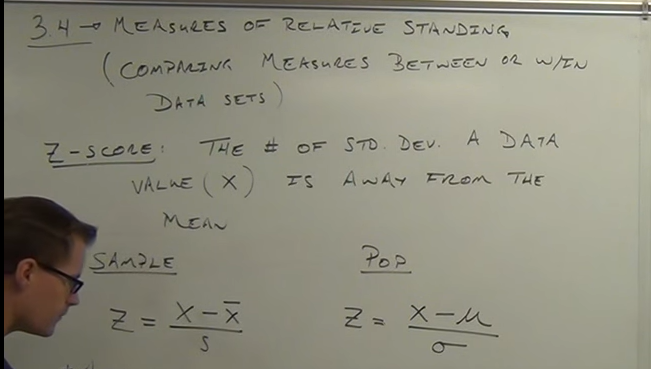 3.4 → MEASURES OF RELATIVE STANDING
(COMPARING MEASURES BETWEEN OR W/IN
DATA SETS)
Z-SCORE: THE # OF STD. DEV. A DATA
VALUE (X) IS AWAY FROM THE
MEAN
SAMPLE POP
Z = (X - x̄)/S Z = (X - μ)/σ